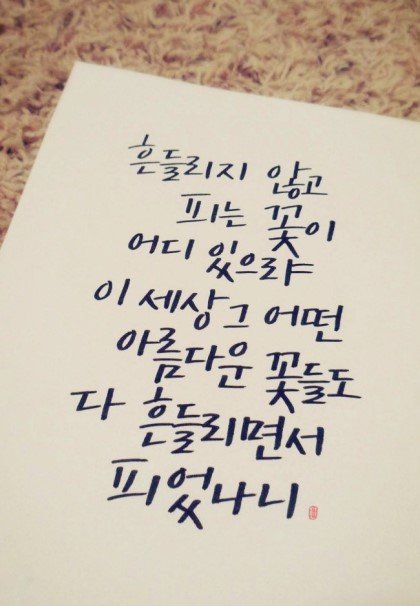 흔들리지 않고
피는 꽃이
어디 있으랴
이 세상 그 어떤
아름다운 꽃들도
다 흔들리면서
피었나니